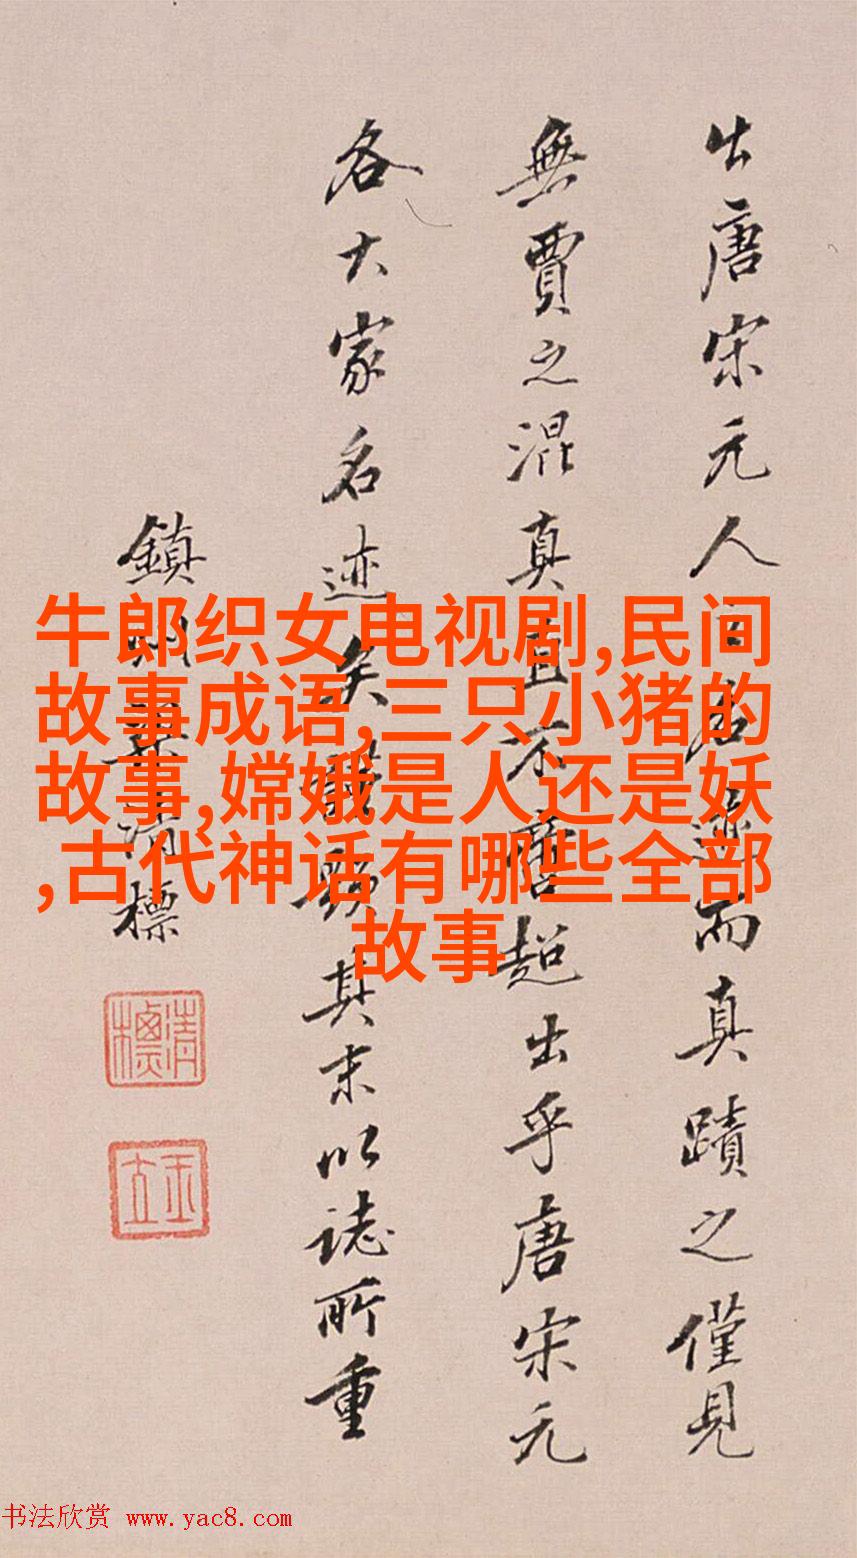 出唐宋元人名而真蹟之僅見
無賈之混真直不啻超出乎唐宋元
各大家名迹矣其末以誌所重
鎮清標
清標
玉立
牛郎织女电视剧,民间
故事成语,三只小猪的
故事,嫦娥是人还是妖
,古代神话有哪些全部
故事
书法欣赏 www.yac8.com